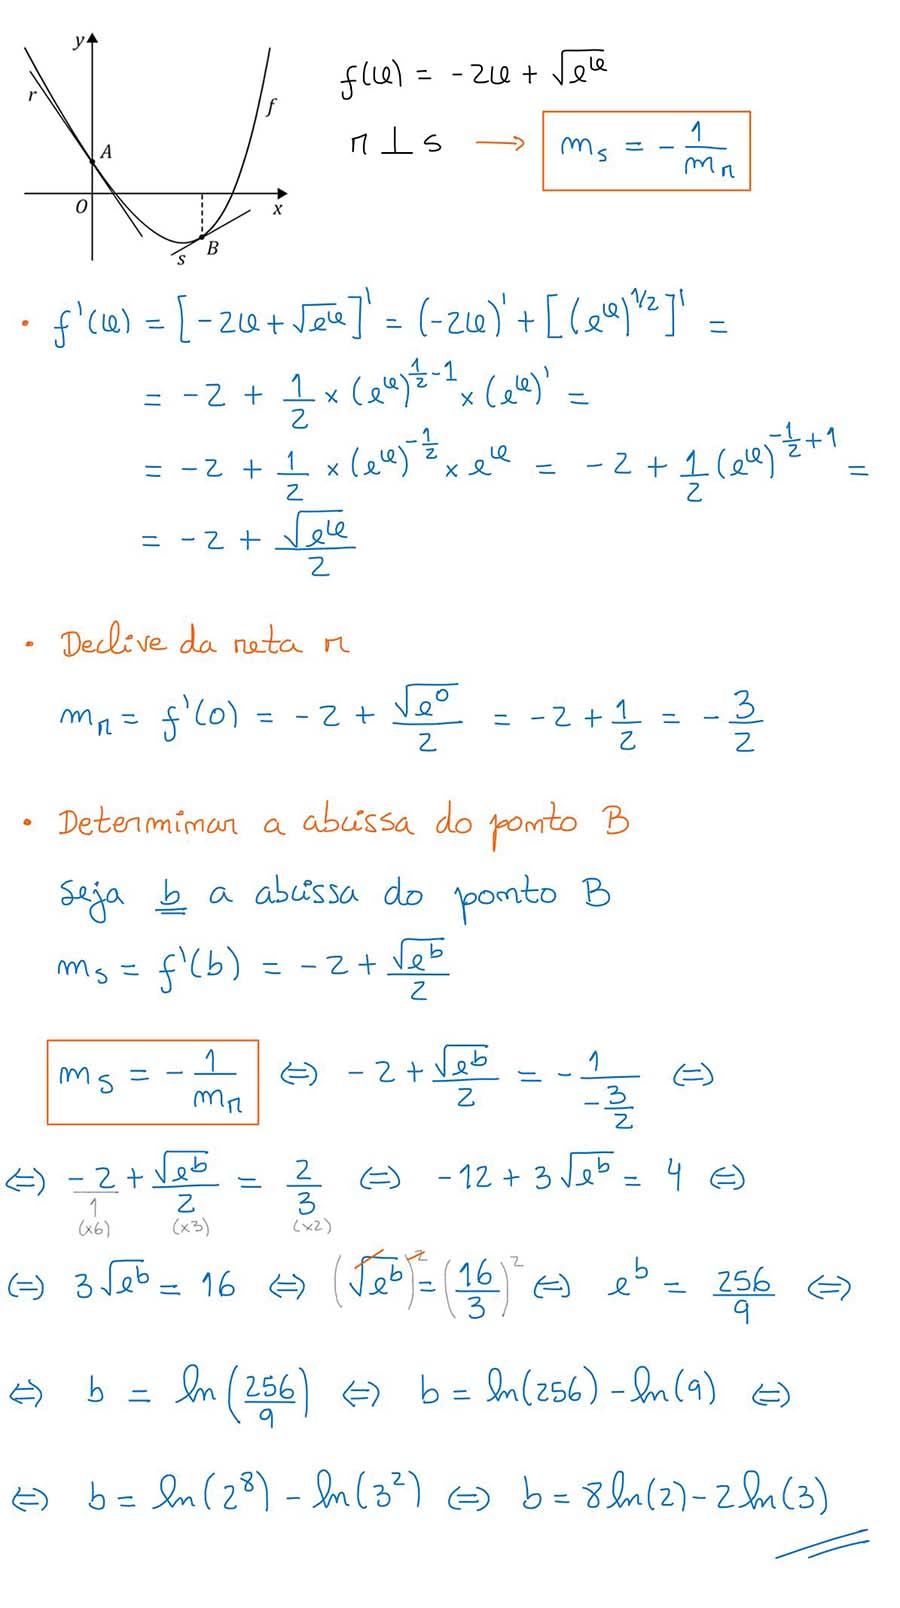 y
r
A
f
O
x
s
B
f(x) = -2x + √e^x
r ⊥ s → m_s = - 1/m_r
• f'(x) = [-2x + √e^x]' = (-2x)' + [(e^x)^{1/2}]' =
= -2 + 1/2 × (e^x)^{1/2 - 1} × (e^x)' =
= -2 + 1/2 × (e^x)^{-1/2} × e^x = -2 + 1/2 (e^x)^{-1/2 + 1} =
= -2 + √e^x/2
• Declive da reta r
m_r = f'(0) = -2 + √e^0/2 = -2 + 1/2 = - 3/2
• Determinar a abcissa do ponto B
Seja b a abcissa do ponto B
m_s = f'(b) = -2 + √e^b/2
m_s = - 1/m_r ⇔ -2 + √e^b/2 = - 1/(-3/2) ⇔
⇔ -2/1 + √e^b/2 = 2/3 ⇔ -12 + 3√e^b = 4 ⇔
(x6) (x3) (x2)
⇔ 3√e^b = 16 ⇔ (√e^b)^2 = (16/3)^2 ⇔ e^b = 256/9 ⇔
⇔ b = ln(256/9) ⇔ b = ln(256) - ln(9) ⇔
⇔ b = ln(2^8) - ln(3^2) ⇔ b = 8ln(2) - 2ln(3)